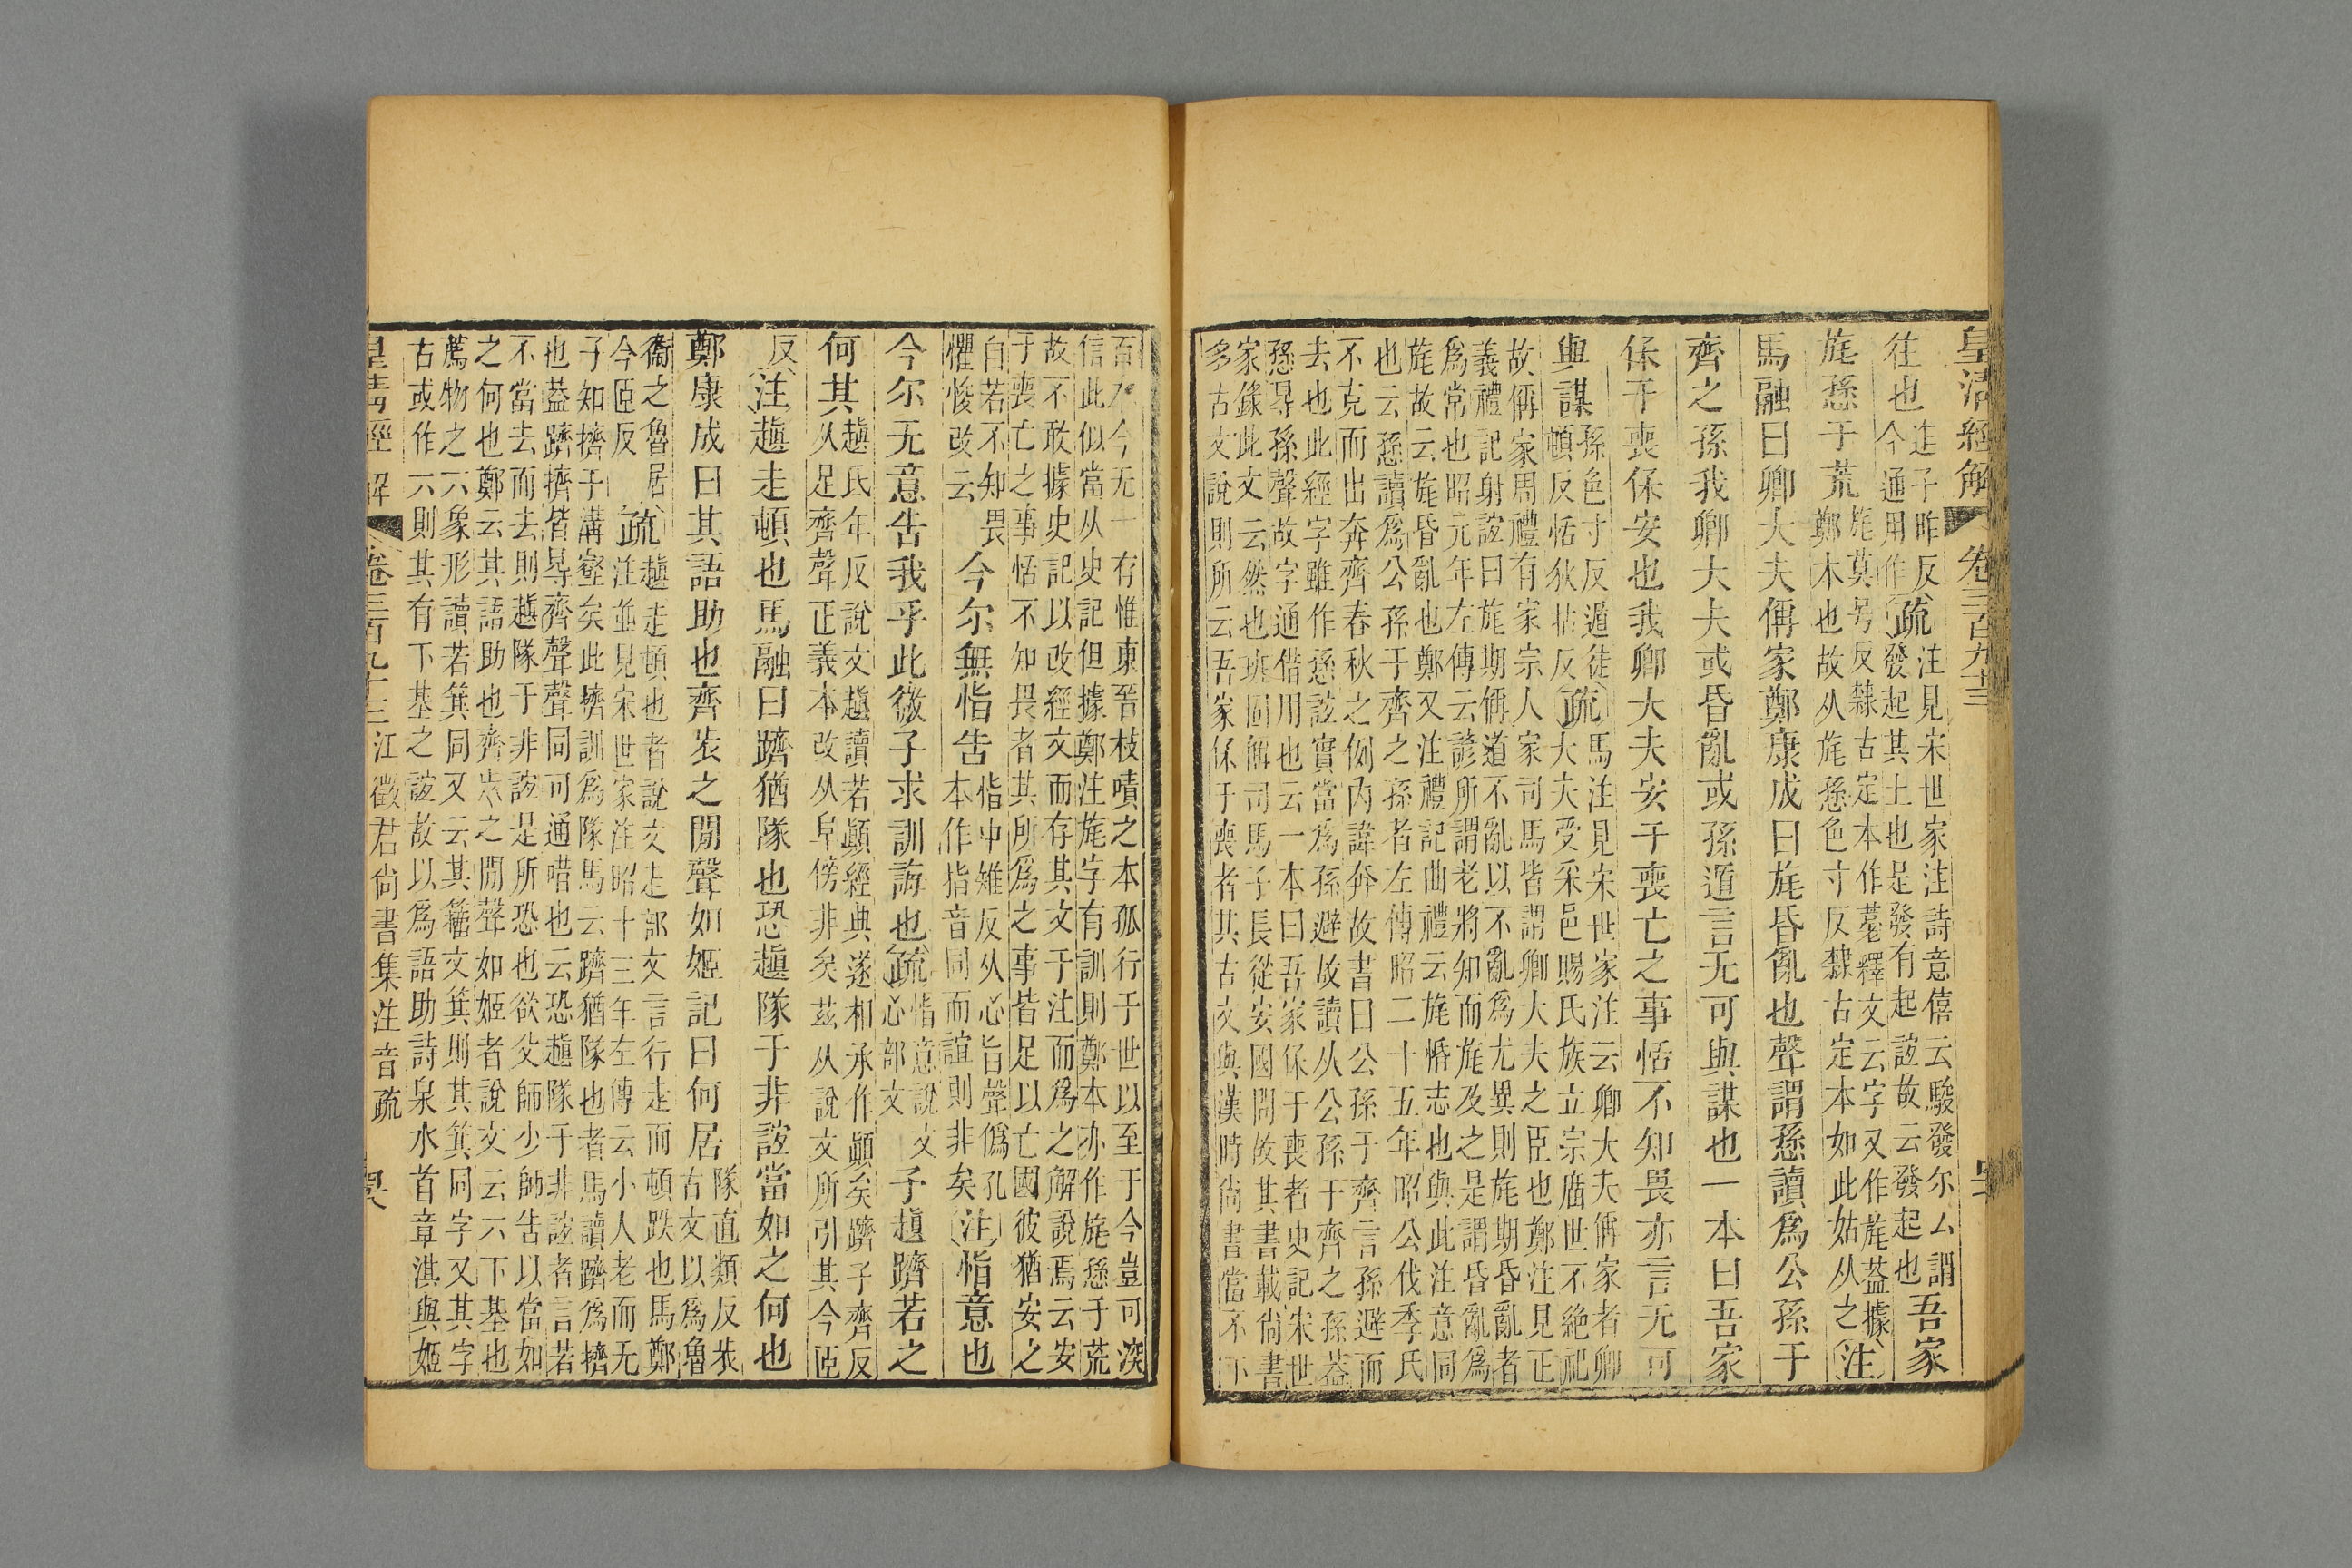 皇清經解 卷三百九十三
往也
迬子昨反
今通用作
疏
注見宋世家注詩意僖云駿發尔厶謂
發起其土也是發有起誼故云發起也
吾家
旄愻于荒
旄莫号反隸古定本作薹釋文云字又作旄葢據
鄭本也故从旄愻色寸反隸古定本如此姑从之
注
馬融曰卿大夫偁家鄭康成曰旄昏亂也聲謂愻讀爲公孫于
齊之孫我卿大夫或昏亂或孫遁言无可與謀也一本曰吾家
保于喪保安也我卿大夫安于喪亡之事恬不知畏亦言无可
與謀
孫色寸反遁徒
頓反恬狄拈反
疏
馬注見宋世家注云卿大夫偁家者卿
大夫受采邑賜氏族立宗庿世不絕祀
故偁家周禮有家宗人家司馬皆謂卿大夫之臣也鄭注見正
義禮記射誼曰旄期偁道不亂以不亂爲尤異則旄期昏亂者
爲常也昭元年左傳云諺所謂老將知而旄及之是謂昏亂爲
旄故云旄昏亂也鄭又注禮記曲禮云旄惛志也與此注意同
也云愻讀爲公孫于齊之孫者左傳昭二十五年昭公伐季氏
不克而出奔齊春秋之例內諱奔故書曰公孫于齊言孫避而
去也此經字雖作愻誼實當爲孫避故讀从公孫于齊之孫葢
愻㝵孫聲故字通借用也云一本曰吾家保于喪者史記宋世
家錄此文云然也班固偁司馬子長從安國問故其書載尚書
多古文說則所云吾家保于喪者其古文與漢時尚書當不下
百本今无一存惟東晉枝嘖之本孤行于世以至于今豈可深
信此似當从史記但據鄭注旄字有訓則鄭本亦作旄愻于荒
故不敢據史記以改經文而存其文于注而爲之解說焉云安
于喪亡之事恬不知畏者其所爲之事皆足以亡國彼猶安之
自若不知畏
懼悛改云
今尔無恉告
恉中雉反从心旨聲僞孔
本作指音同而誼則非矣
注
恉意也
今尔无意告我乎此微子求訓誨也
疏
恉意說文
心部文
子趫躋若之
何其
趫氏年反說文趫讀若顚經典遂相承作顚矣躋子齊反
从足齊聲正義本改从𨸏傍非矣茲从說文所引其今𦣞
反
注
趫走頓也馬融曰躋猶隊也恐趫隊于非誼當如之何也
鄭康成曰其語助也齊㳒之閒聲如姬記曰何居
隊直類反㳒
古文以爲魯
衞之魯居
今𦣞反
疏
趫走頓也者說文走部文言行走而頓跌也馬鄭
注並見宋世家注昭十三年左傳云小人老而无
子知擠于溝壑矣此擠訓爲隊馬云躋猶隊也者馬讀躋爲擠
也葢躋擠皆㝵齊聲聲同可通唶也云恐趫隊于非誼者言若
不當去而去則趫隊于非誼是所恐也欲父師少師告以當如
之何也鄭云其語助也齊㳒之閒聲如姬者說文云六下基也
薦物之六象形讀若箕同又云其籒文箕則其箕同字又其字
古或作六則其有下基之誼故以爲語助詩泉水首章淇與姬
皇清經解 卷三百九十三 江徵君尚書集注音疏